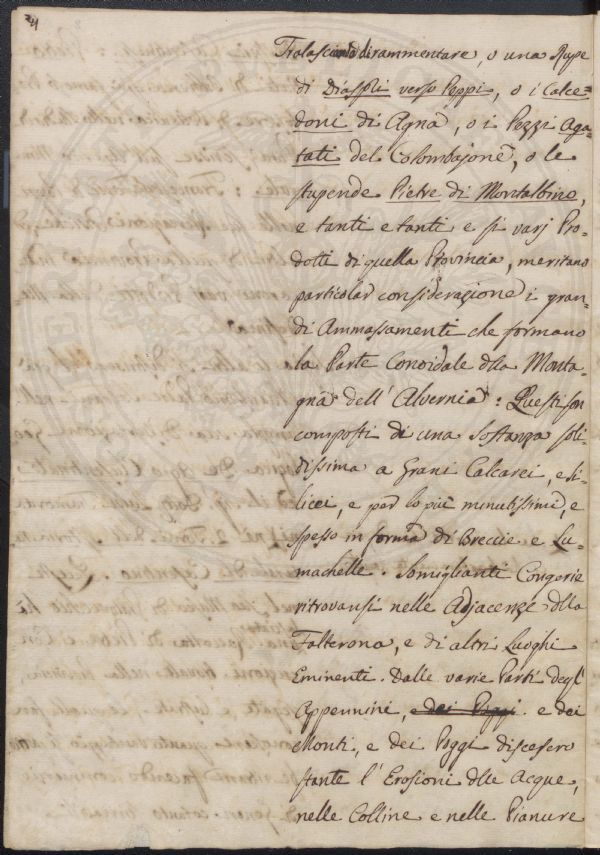 24
Tralasciando di rammentare, o una Rupe
di Diaspri verso Peppi, o i Calce=
doni di Agna, o i Pezzi Aga=
tati del Colombajone, o le
stupende Pietre di Montalbino,
e tanti e tanti e sì varj Pro=
dotti di quella Provincia, meritano
particolar considerazione i gran=
di Ammassamenti che formano
la Parte Conoidale dlla Monta=
gna dell' Alvernia: Questi son
composti di una sostanza soli=
dissima a Grani Calcarei, e si=
licei, e per lo più minutissimi, e
spesso in forma di Breccie e Lu=
machelle. Somiglianti Congerie
ritrovansi nelle Adjacenze dlla
Falterona, e di altri Luoghi
Eminenti. Dalle varie Parti degl'
Appennini, e dei Poggi e dei
Monti, e dei Poggi discesero
stante l'Erosioni dlle Acque,
nelle Colline e nelle Pianure